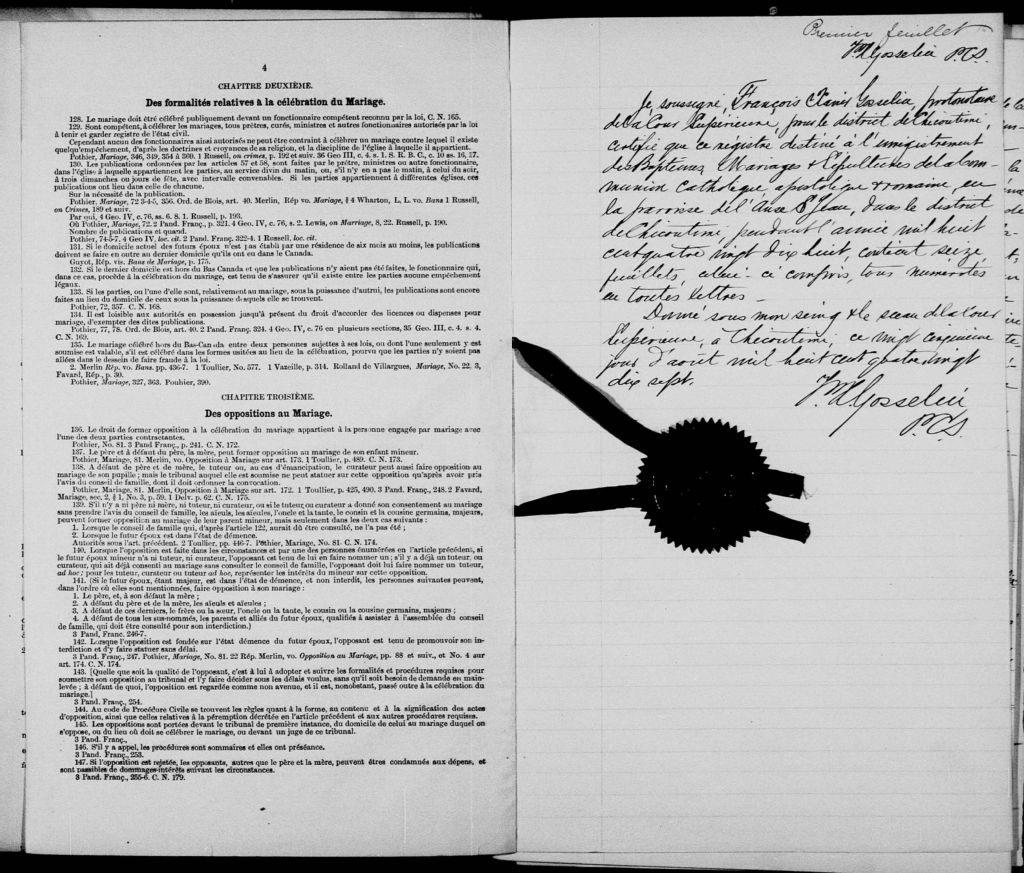 4
CHAPITRE DEUXIÈME.
Des formalités relatives à la célébration du Mariage.
128. Le mariage doit être célébré publiquement devant un fonctionnaire compétent reconnu par la loi, C. N. 165.
129. Sont compétent, à célébrer les mariages, tous prêtres, curés, ministres et autres fonctionnaires autorisés par la loi
à tenir et garder registre de l'état civil.
Cependant aucun des fonctionnaires ainsi autorisés ne peut être contraint à célébrer un mariage contre lequel il existe
quelqu'empêchement, d'après les doctrines et croyances de sa religion, et la discipline de l'église à laquelle il appartient.
Pothier, Mariage, 346, 349, 354 à 360. 1 Russell, on crimes, p. 192 et suiv. 36 Geo III, c. 4. s. 1. S. R. B. C., c. 10 ss. 16, 17.
130. Les publications ordonnées par les articles 57 et 58, sont faites par le prêtre, ministres ou autre fonctionnaire,
dans l'église à laquelle appartiennent les parties, au service divin du matin, ou, s'il n'y en a pas le matin, à celui du soir,
à trois dimanches ou jours de fête, avec intervalle convenables. Si les parties appartiennent à différentes églises, ces
publications ont lieu dans celle de chacune.
Sur la nécessité de la publication.
Pothier, Mariage, 72 3-4-5, 356. Ord. de Blois, art. 40. Merlin, Rép vo. Mariage, § 4 Wharton, L, L. vo. Bans 1 Russell,
on Crimes, 189 et suiv.
Par qui, 4 Geo. IV, c. 76, ss. 6. 8. 1. Russell, p. 193.
Où Pothier, Mariage, 72. 2 Pand. Franç., p. 321. 4 Geo. IV, c. 76, s. 2. Lewis, on Marriage, 8, 22. Russell, p. 190.
Nombre de publications et quand.
Pothier, 74-5-7. 4 Geo IV. loc. cit. 2 Pand. Franç. 322-4. 1 Russell, loc. cit.
131. Si le domicile actuel des futurs époux n'est pas établi par une résidence de six mois au moins, les publications
doivent se faire en outre au dernier domicile qu'ils ont eu dans le Canada.
Guyot, Rép. vis. Bans de Mariage, p. 175.
132. Si le dernier domicile est hors du Bas Canada et que les publications n'y aient pas été faites, le fonctionnaire qui,
dans ce cas, procède à la célébration du mariage, est tenu de s'assurer qu'il existe entre les parties aucune empêchement
légaux.
133. Si les parties, ou l'une d'elle sont, relativement au mariage, sous la puissance d'autrui, les publications sont encore
faites au lieu du domicile de ceux sous la puissance desquels elle se trouvent.
Pothier, 72, 357. C. N. 168.
134. Il est loisible aux autorités en possession jusqu'à présent du droit d'accorder des licences ou dispenses pour
mariage, d'exempter des dites publications.
Pothier, 77, 78. Ord. de Blois, art. 40. 2 Pand. Franç. 324. 4 Geo. IV, c. 76 en plusieurs sections, 35 Geo. III, c. 4. s. 4.
C. N. 169.
135. Le mariage célébré hors du Bas-Canada entre deux personnes sujettes à ses lois, ou dont l'une seulement y est
soumise est valable, s'il est célébré dans les formes usitées au lieu de la célébration, pourvu que les parties n'y soient pas
allées dans le dessein de faire fraude à la loi.
2. Merlin Rép. vo. Bans. pp. 436-7. 1 Toullier, No. 577. 1 Vazeille, p. 314. Rolland de Villargues, Mariage, No. 22, 3,
Favard, Rép., p. 30.
Pothier, Mariage, 327, 363. Pouhier, 390.
CHAPITRE TROISIÈME.
Des oppositions au Mariage.
136. Le droit de former opposition à la célébration du mariage appartient à la personne engagée par mariage avec
l'une des deux parties contractantes.
Pothier, No. 81. 3 Pand Franç., p. 241. C. N. 172.
137. Le père et à défaut du père, la mère, peut former opposition au mariage de son enfant mineur.
Pothier, Mariage, 81. Merlin, vo. Opposition à Mariage sur art. 173. 1 Toullier, p. 489. C. N. 173.
138. A défaut de père et de mère, le tuteur ou, au cas d'émancipation, le curateur peut aussi faire opposition au
mariage de son pupille ; mais le tribunal auquel elle est soumise ne peut statuer sur cette opposition qu'après avoir pris
l'avis du conseil de famille, dont il doit ordonner la convocation.
Pothier, Mariage, 81. Merlin, Opposition à Mariage sur art. 172. 1 Toullier, p. 425, 490. 3 Pand. Franç., 248. 2 Favard,
Mariage, sec. 2, § 1, No. 3, p. 59. 1 Delv. p. 62. C. N. 175.
139. S'il n'y a ni père ni mère, ni tuteur, ni curateur, ou si le tuteur ou curateur a donné son consentement au mariage
sans prendre l'avis du conseil de famille, les aïeuls, les aïeules, l'oncle et la tante, le cousin et la cousine germains, majeurs,
peuvent former opposition au mariage de leur parent mineur, mais seulement dans les deux cas suivants :
1. Lorsque le conseil de famille qui, d'après l'article 122, aurait dû être consulté, ne l'a pas été ;
2. Lorsque le futur époux est dans l'état de démence.
Autorités sous l'art. précédent. 2 Toullier, pp. 446-7. Pothier, Mariage, No. 81. C. N. 174.
140. Lorsque l'opposition est faite dans les circonstances et par une des personnes énumérées en l'article précédent, si
le futur époux mineur n'a ni tuteur, ni curateur, l'opposant est tenu de lui en faire nommer un ; s'il y a déjà un tuteur, ou
curateur, qui ait déjà consenti au mariage sans consulter le conseil de famille, l'opposant doit lui faire nommer un tuteur,
ad hoc ; pour les tuteur, curateur ou tuteur ad hoc, représenter les intérêts du mineur sur cette opposition.
141. (Si le futur époux, étant majeur, est dans l'état de démence, et non interdit, les personnes suivantes peuvent,
dans l'ordre où elles sont mentionnées, faire opposition à son mariage :
1. Le père, et, à son défaut la mère ;
2. A défaut du père et de la mère, les aïeuls et aïeules ;
3. A défaut de ces derniers, le frère ou la sœur, l'oncle ou la tante, le cousin ou la cousine germains, majeurs ;
4. A défaut de tous les sus-nommés, les parents et alliés du futur époux, qualifiés à assister à l'assemblée du conseil
de famille, qui doit être consulté pour son interdiction.)
3 Pand, Franc. 246-7.
142. Lorsque l'opposition est fondée sur l'état démence du futur époux, l'opposant est tenu de promouvoir son in-
terdiction et d'y faire statuer sans délai.
3 Pand. Franç., 247. Pothier, Mariage, No. 81. 22 Rép. Merlin, vo. Opposition au Mariage, pp. 88 et suiv., et No. 4 sur
art. 174. C. N. 174.
143. [Quelle que soit la qualité de l'opposant, c'est à lui à adopter et suivre les formalités et procédures requises pour
soumettre son opposition au tribunal et l'y faire décider sous les délais voulus, sans qu'il soit besoin de demande en main-
levée ; à défaut de quoi, l'opposition est regardée comme non avenue, et il est, nonobstant, passé outre à la célébration du
mariage.]
3 Pand. Franç., 254.
144. Au code de Procédure Civile se trouvent les règles quant à la forme, au contenu et à la signification des actes
d'opposition, ainsi que celles relatives à la péremption décrétée en l'article précédent et aux autres procédures requises.
145. Les oppositions sont portées devant le tribunal de première instance, du domicile de celui au mariage duquel on
s'oppose, ou du lieu où doit se célébrer le mariage, ou devant un juge de ce tribunal.
3 Pand. Franç.,
146. S'il y a appel, les procédures sont sommaires et elles ont préséance.
3 Pand. Franç., 253.
147. Si l'opposition est rejetée, les opposants, autres que le père et la mère, peuvent êtres condamnés aux dépens, et
sont passibles de dommages-intérêts suivant les circonstances.
3 Pand. Franç., 255-6. C. N. 179.
Premier feuillet
Gosselin P.C.S.
Je, soussigné, François Xavier Gosselin, protonotaire
de la Cour Supérieure, pour le district de Chicoutimi,
certifie que ce régistre destiné à l'enregistrement
des Baptêmes, Mariages & Sépultures de la Com-
munion Catholique apostolique & romaine, en
la paroisse de l'Anse St Jean, dans le district
de Chicoutimi, pendant l'année mil huit
cent quatre vingt dix huit, contient seize
feuillets, celui-ci compris, tous numérotés
en toutes lettres –
Donné sous mon seing & le sceau de la Cour
Supérieure, à Chicoutimi, ce vingt cinquième
jour d'août mil huit cent quatre vingt
dix sept.
Gosselin
P.C.S.